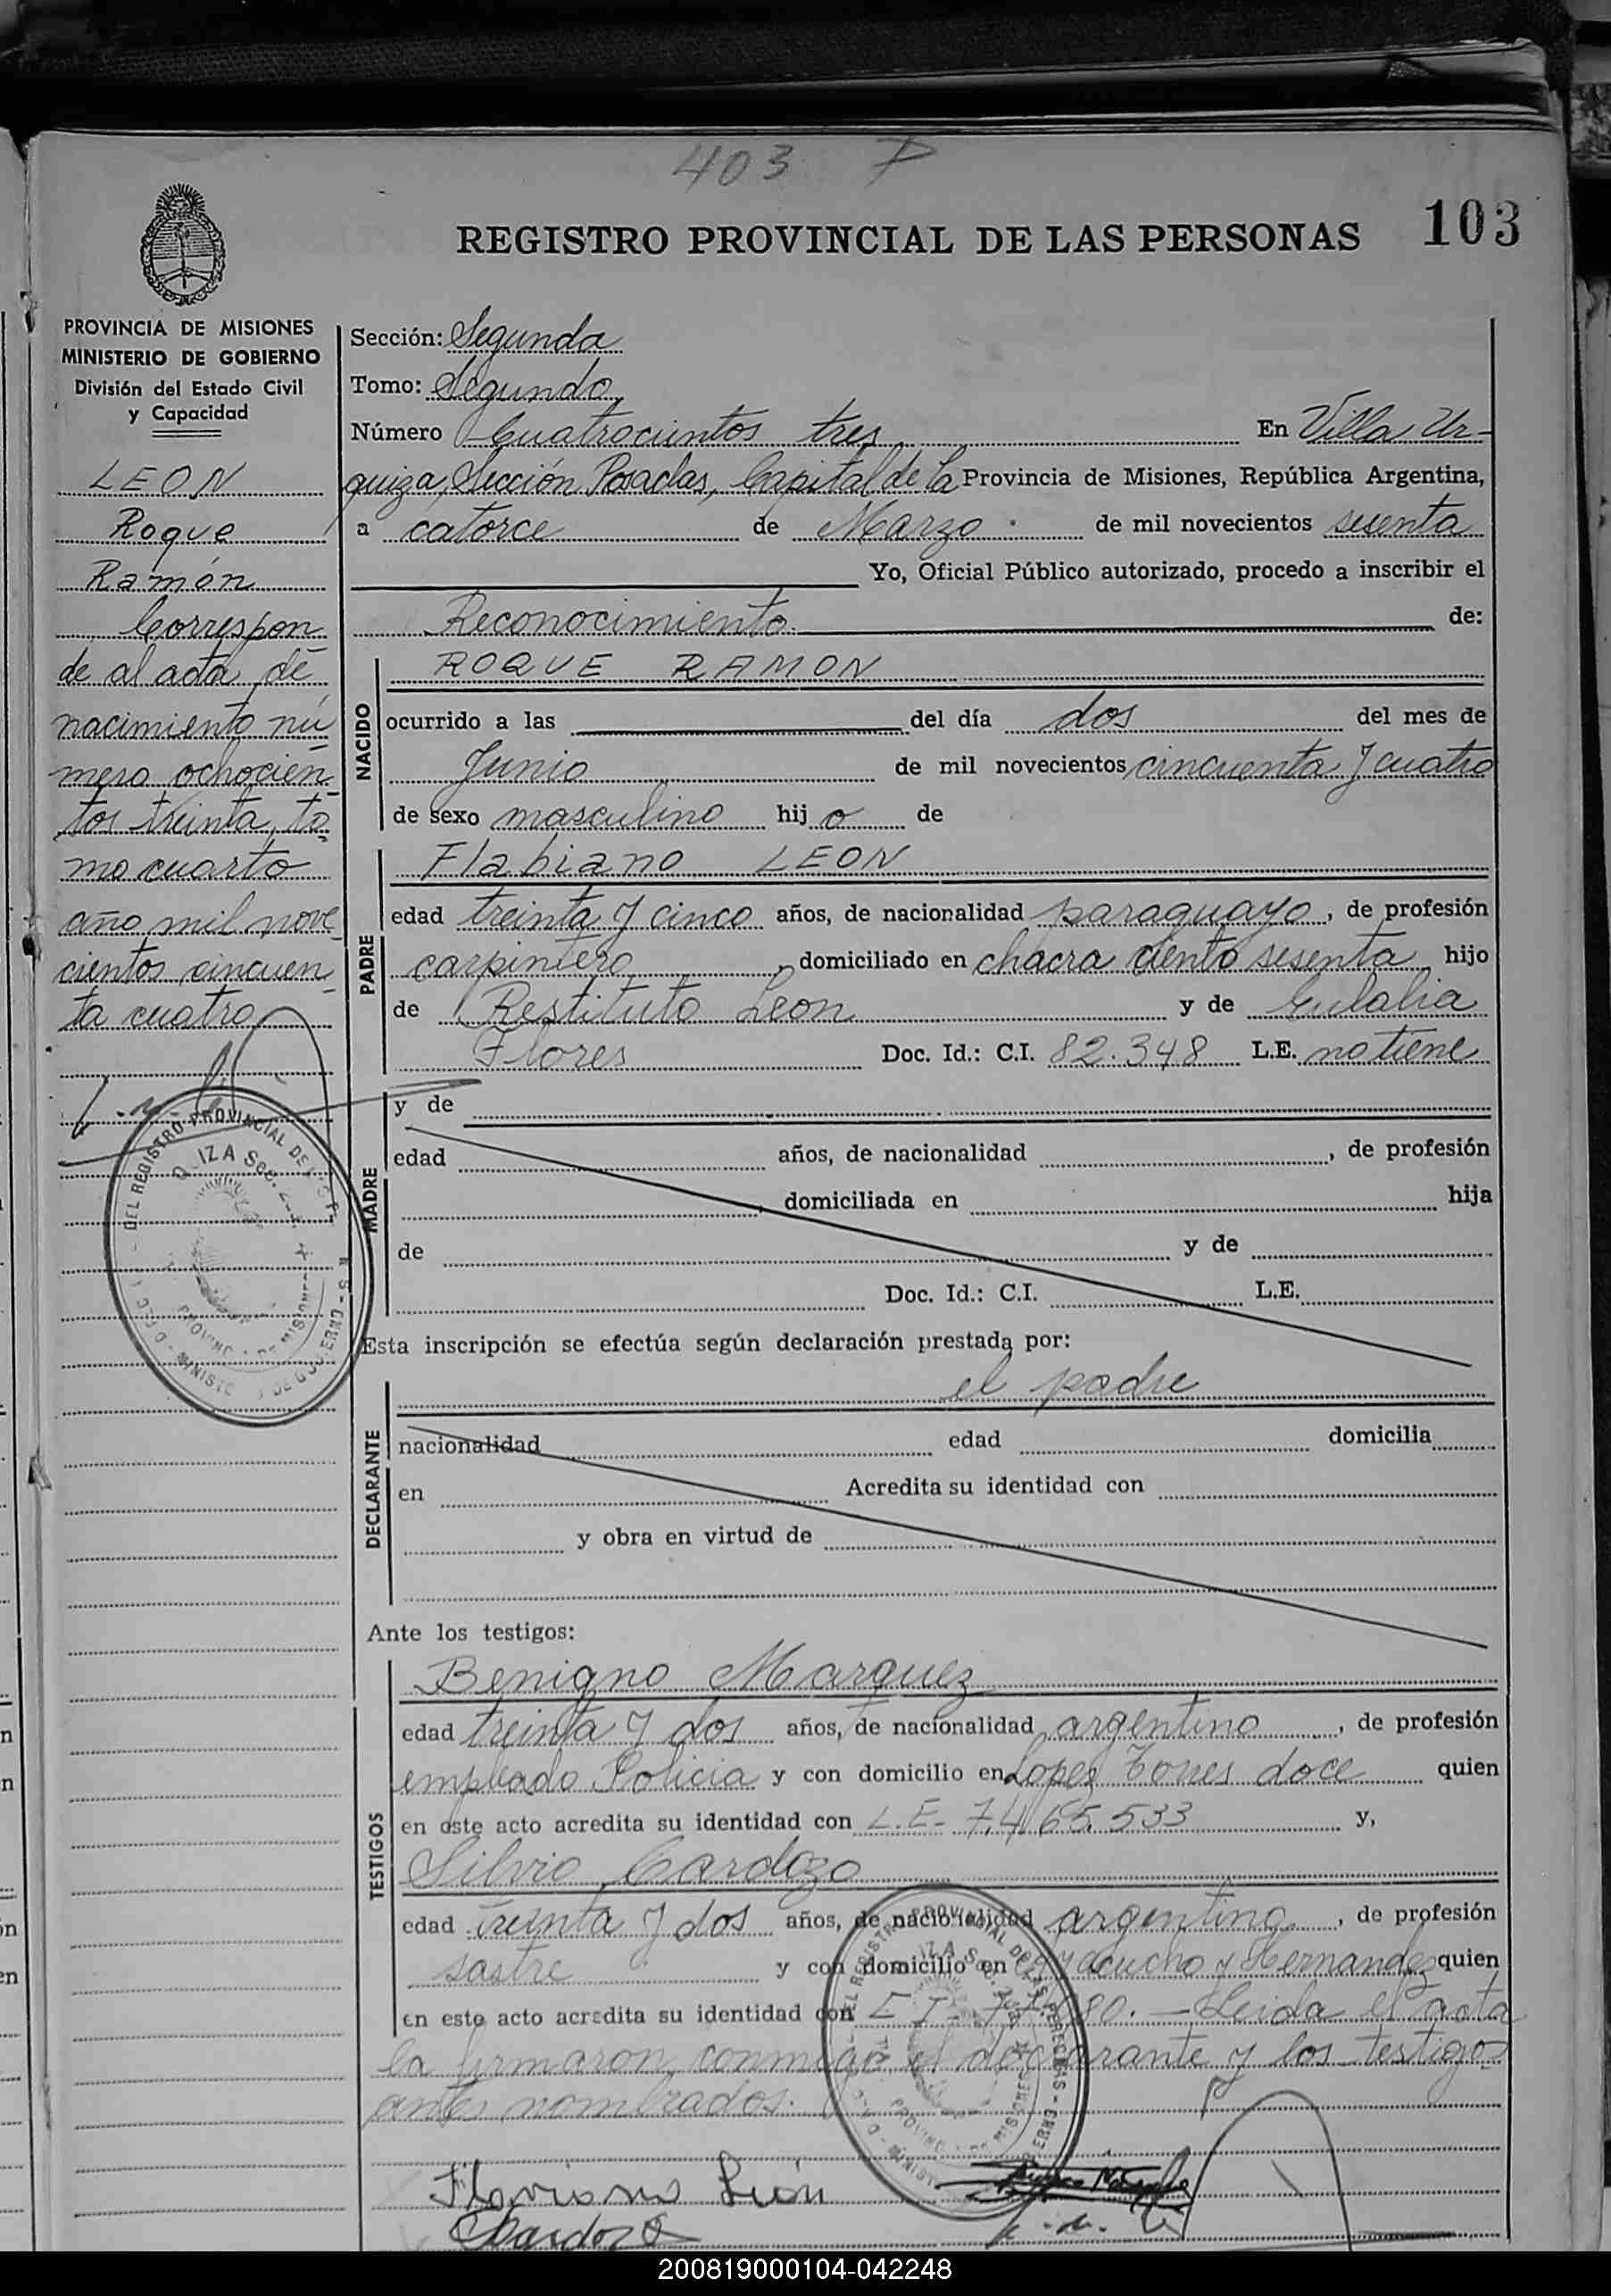 403
REGISTRO PROVINCIAL DE LAS PERSONAS 103
PROVINCIA DE MISIONES
MINISTERIO DE GOBIERNO
División del Estado Civil
y Capacidad
LEON
Roque
Ramón
Correspon
de al acta de
nacimiento nú
mero ochocien
tos treinta, to
mo cuarto
año mil nove
cientos cincuen
ta cuatro
Sección: Segunda
Tomo: Segundo
Número Cuatrocientos tres En Villa Ur-
quiza, Sección Posadas, Capital de la Provincia de Misiones, República Argentina,
a catorce de Marzo de mil novecientos sesenta
Yo, Oficial Público autorizado, procedo a inscribir el
Reconocimiento de:
NACIDO
ROQUE RAMON
ocurrido a las del día dos del mes de
Junio de mil novecientos cincuenta y cuatro
de sexo masculino hijo de
PADRE
Flabiano LEON
edad treinta y cinco años, de nacionalidad paraguayo, de profesión
carpintero, domiciliado en chacra ciento sesenta hijo
de Restituto Leon y de Eulalia
Flores Doc. Id.: C.I. 82.348 L.E. no tiene
MADRE
y de
edad años, de nacionalidad , de profesión
domiciliada en hija
de y de
Doc. Id.: C.I. L.E.
Esta inscripción se efectúa según declaración prestada por:
el padre
DECLARANTE
nacionalidad edad domicilia
en Acredita su identidad con
y obra en virtud de
Ante los testigos:
TESTIGOS
Benigno Marquez
edad treinta y dos años, de nacionalidad argentino, de profesión
empleado Policia y con domicilio en Lopez Torres doce quien
en este acto acredita su identidad con L.E. 7.465.533 y,
Silvio Cardozo
edad treinta y dos años, de nacionalidad argentino, de profesión
sastre y con domicilio en Ayacucho y Hernandez quien
en este acto acredita su identidad con Leida el acta
la firmaron conmigo el declarante y los testigos
antes nombrados.
Flaviano León
Cardozo
200819000104-042248